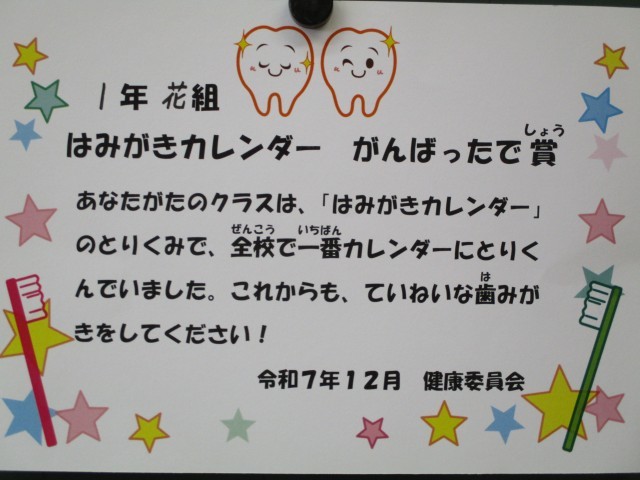 1年 花組
はみがきカレンダー　がんばったで賞
しょう
あなたがたのクラスは、「はみがきカレンダー」
ぜんこう　いちばん
のとりくみで、全校で一番カレンダーにとりく
は
んでいました。これからも、ていねいな歯みが
きをしてください！
令和７年１２月　健康委員会